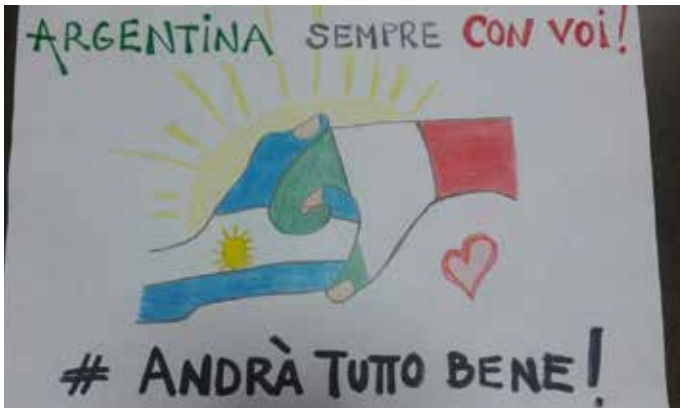 ARGENTINA SEMPRE CON VOI!
# ANDRÀ TUTTO BENE!